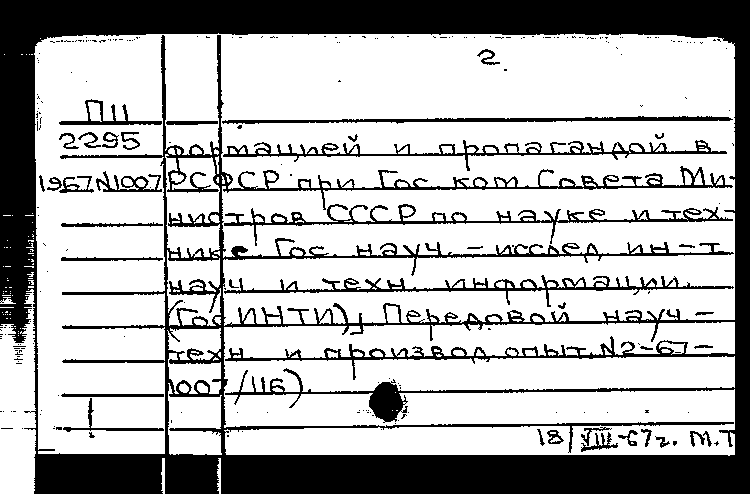 2.
П11
2295 формацией и пропагандой в
1967N1007 РСФСР при Гос. ком. Совета Ми-
нистров СССР по науке и тех-
нике. Гос. науч.-исслед ин-т
науч. и техн. информации.
(Гос ИНТИ)」 Передовой науч-
техн. и производ опыт, N2-67-
1007/116).
18/VIII-67г. М.Т